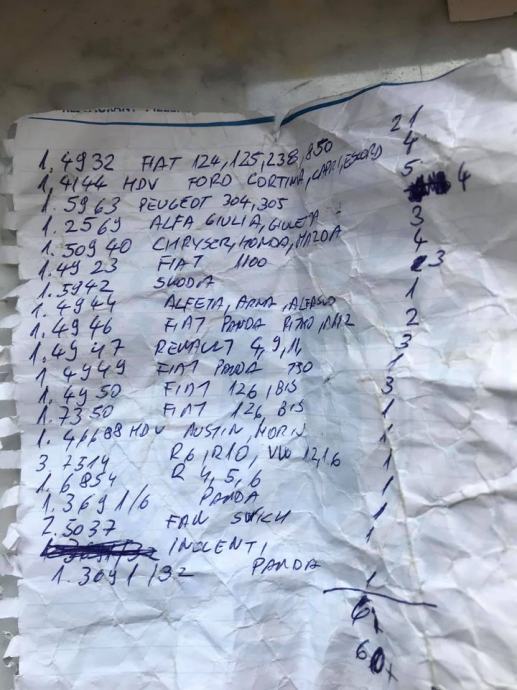 1. 4932 FIAT 124, 125, 238, 850 21
1. 4144 HDV FORD CORTINA, CAPRI, ESCORD 4
1. 5963 PEUGEOT 304, 305 5
1. 2569 ALFA GIULIA, GIULETA 4
1. 50940 CHRYSER, HONDA, MAZDA 3
1. 4923 FIAT 1100 4
1. 5942 SKODA 3
1. 4944 ALFETA, ARNA, ALFASUD 1
1. 4946 FIAT PANDA RITMO, 2
1. 4947 RENAULT 4, 9, 11, 3
1. 4949 FIAT PANDA 750 1
1. 4950 FIAT 126, BIS 3
1. 7350 FIAT 126, BIS 1
1. HDV AUSTIN, MORIS 1
3. 7314 R6, R10, VW 12,1,6 1
1. 6854 R 4, 5, 6 1
1. 3691/6 PANDA 1
2. 5037 FAN SWICH 1
INOCENTI, 1
1. 3691/32 PANDA 1
60